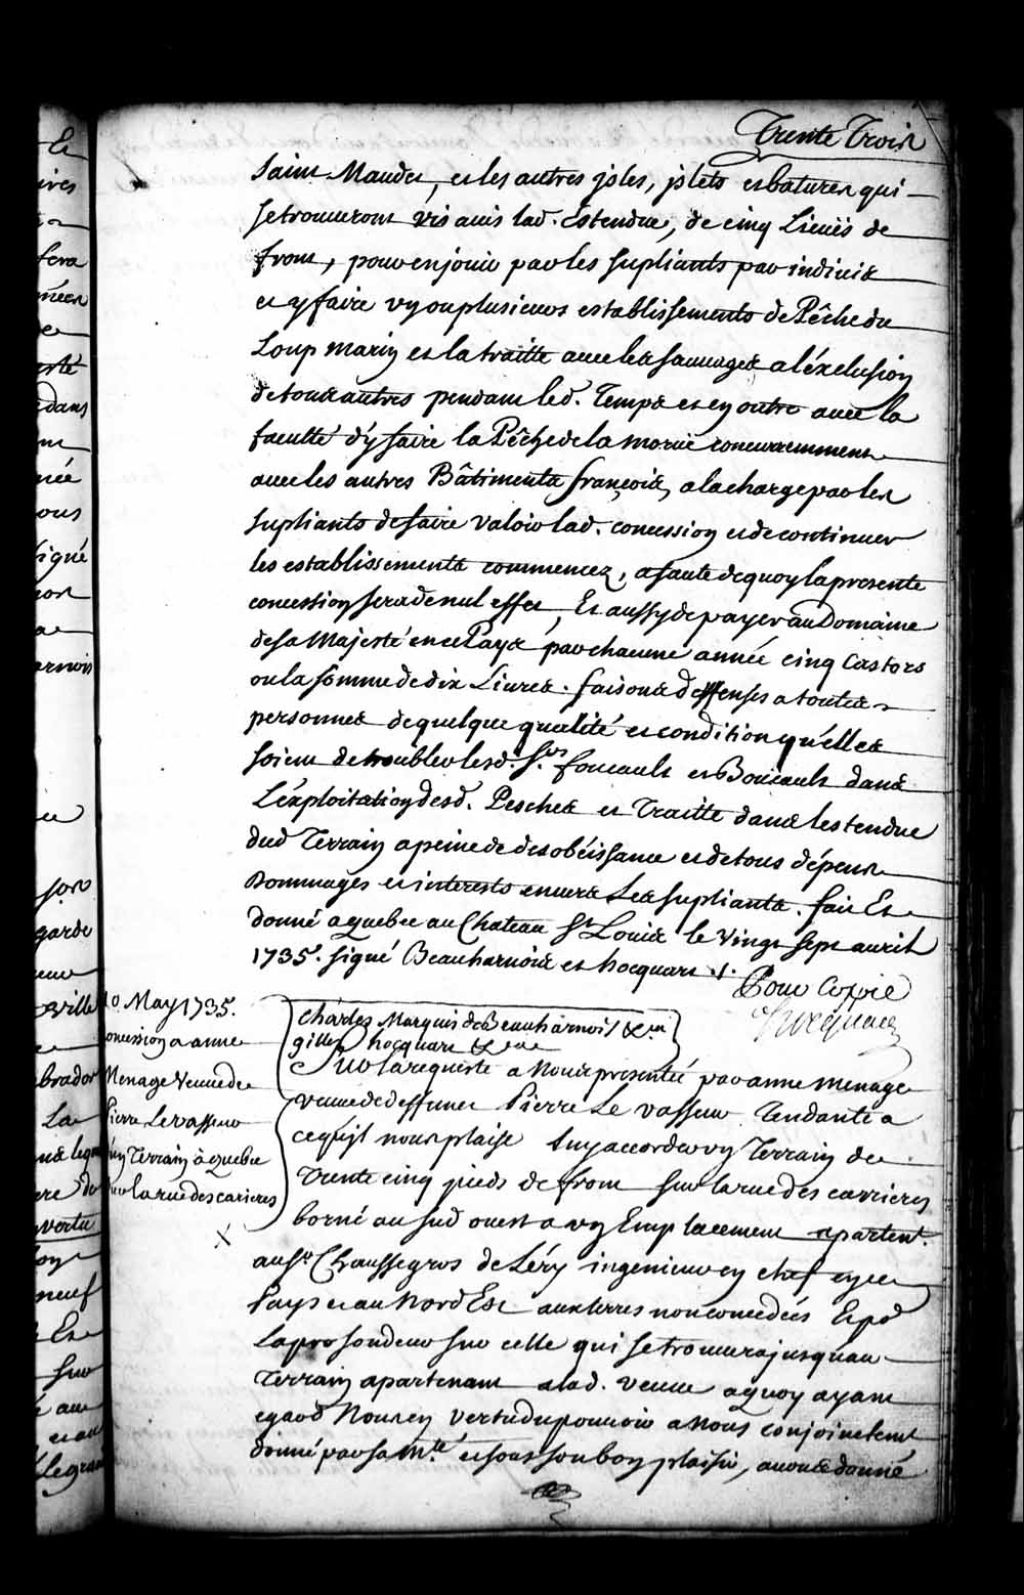 Trente Trois
Saint Maudet, et les autres jsles, jslets et batures qui
se trouueront vis auis lad. Estendue, de cinq Lieües de
front, pour en jouir par les supliants par indivis
et y faire vn ou plusieurs establissements de Pêche du
Loup marin et la traitte auec les sauuages a l'éxclusion
de tous autres pendant led. Temps et en outre auec la
faculté d'y faire la Pêche de la moruë concurremment
auec les autres Bâtiments françois, a la charge par les
supliants de faire valoir lad. concession et de continuer
les establissements commencez, a faute de quoy la presente
concession sera de nul effet, Et aussy de payer au Domaine
de sa Majesté en ce Pays par chacune année cinq Castors
ou la somme de dix Liures. faisons deffenses a toutes
personnes de quelque qualité et condition qu'elles
soient de troubler lesd. Srs. foucault et Boucault dans
L'éxploitation desd. Pesches et Traitte dans lestendue
dud Terrain a peine de desobéissance et de tous dépens
Dommages et interests enuers Les supliants. fait Et
donné a quebec au Chateau St Louis le Vingt sept auril
1735. signé Beauharnois et hocquart ./.
Pour Copie
Hocquart
10. May 1735.
concession a anne
Menage Veuue de
Pierre Levasseur
d'un Terrain à quebec
sur la rue des carieres
Charles Marquis de Beauharnois &ca
gilles hocquart &ca
Sur la requeste a Nous presenteé par anne menage
veuue de deffunct Pierre Le vasseur Tendante a
ce qu'jl nous plaise Luy accorder vn Terrain de
Trente cinq pieds de front sur la rue des carrieres
borné au sud ouest a vn Emplacement apartent.
au Sr. Chaussegros de Léry ingenieur en chef en ce
Pays et au Nord Est aux terres non concedeés Et pr
La profondeur sur celle qui se trouuera jusquau
Terrain apartenant a lad. veuue a quoy ayant
egard Nous en vertu du pouuoir a Nous conjoinctemt
donné par sa Mté. et sous son bon plaisir, auons donné